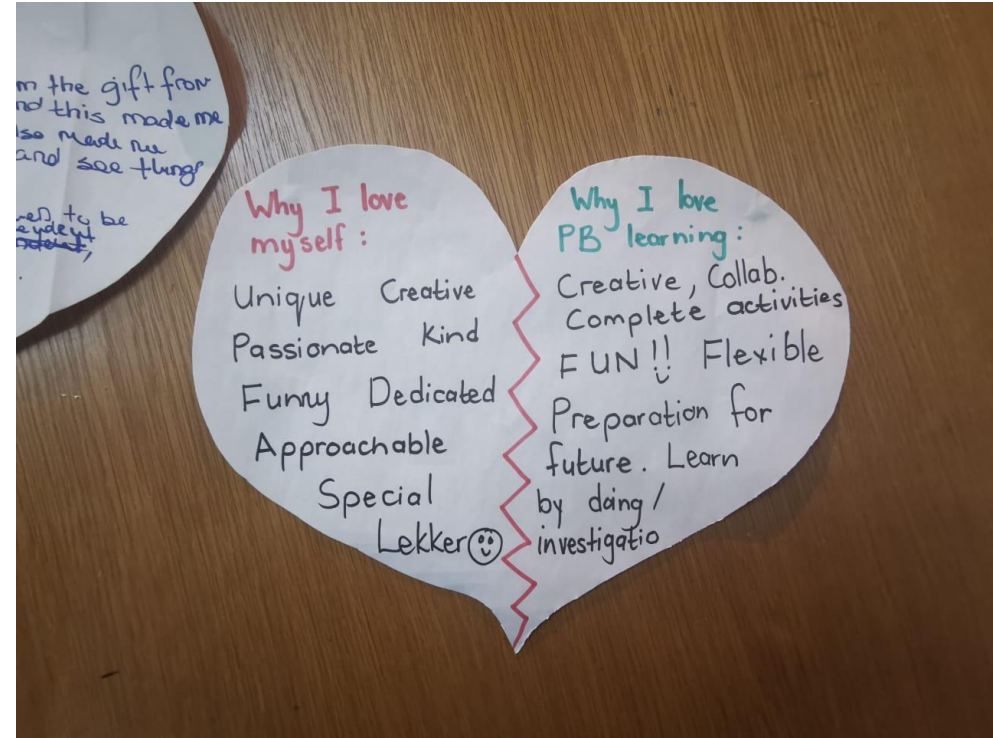 m the gift from
nd this made me
so made me
and see things
to be
Why I love
myself :
Unique Creative
Passionate Kind
Funny Dedicated
Approachable
Special
Lekker
Why I love
PB learning :
Creative, Collab.
Complete activities
FUN!! Flexible
Preparation for
future. Learn
by doing /
investigatio